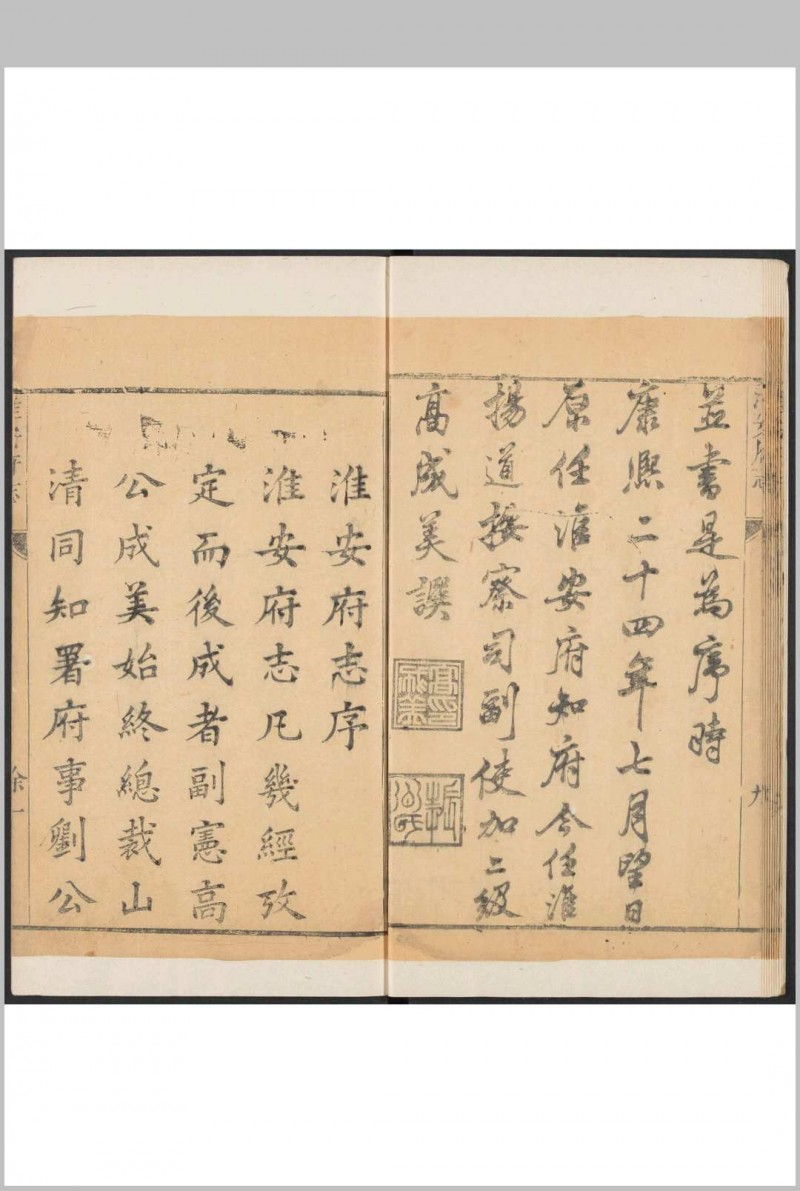 並書是為序時
康熙二十四年七月望日
原任淮安府知府今任淮
揚道按察司副使加二級
高成美譔
九
淮安府志序
淮安府志凡幾經攷
定而後成者副憲高
公成美始終總裁山
清同知署府事劉公
淮安府志
余一